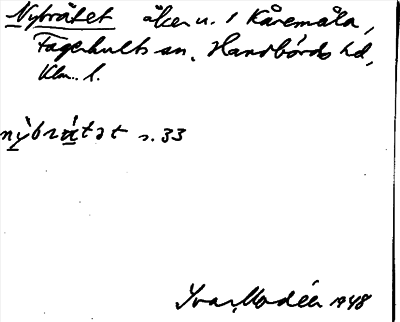 Nybrátet åker u. 1 Kåremåla,
Fagerhults sn, Handbörds hd,
Klm. l.
nỳbrátət s. 33
Ivar Modéer 1948